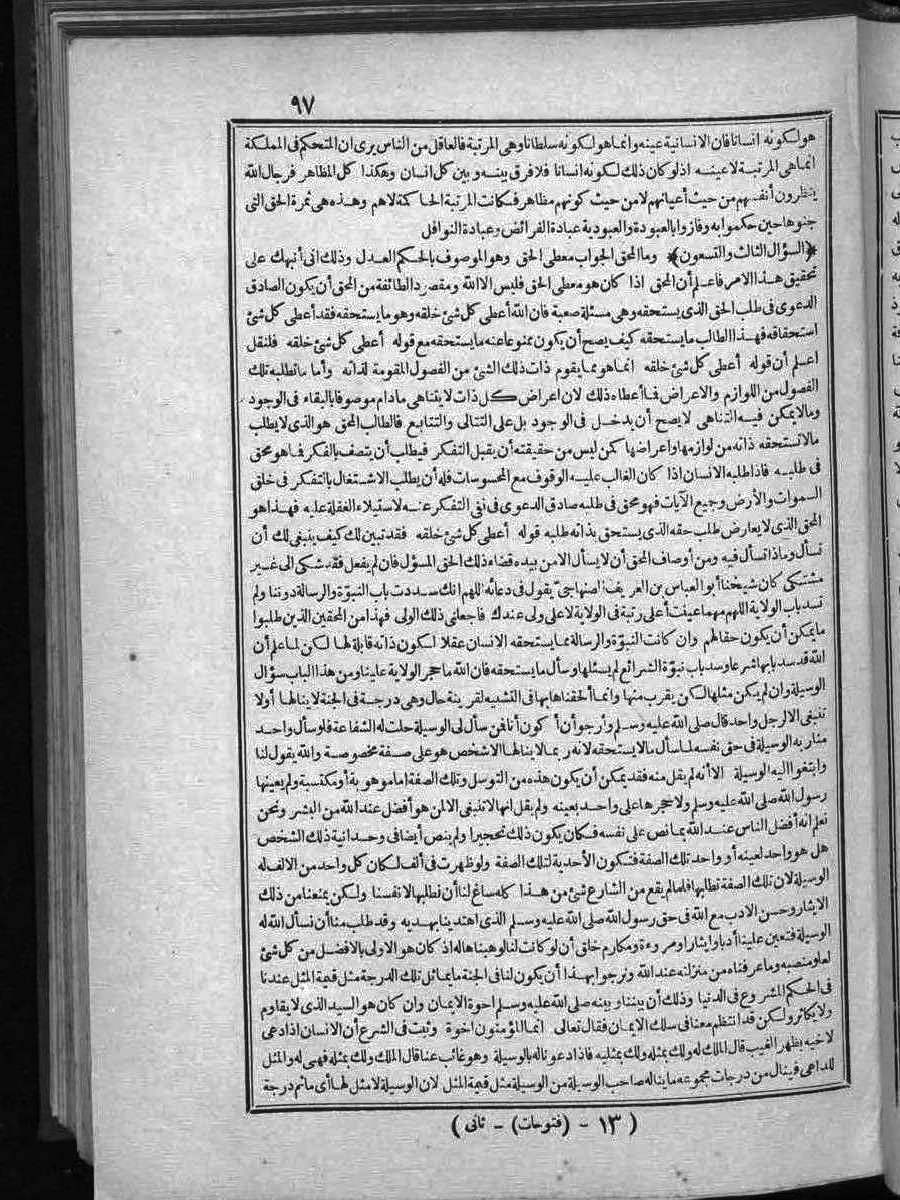 ٩٧
هو لكونه انسانا فان الانسانية عينه وانما هو لكونه سلطانا وهى المرتبة فالعاقل من الناس يرى ان المتحكم فى المملكة
انما هى المرتبة لا عينه اذ لو كان ذلك لكونه انسانا فلا فرق بينه وبين كل انسان وهكذا كل المظاهر فرجال الله
ينظرون أنفسهم من حيث أعيانهم لا من حيث كونهم مظاهر فكانت المرتبة الحاكمة لاهم وهذه هى ثمرة الحق التى
جنوها حين حكموا به وفازوا بالعبودة والعبودية عبادة الفرائض وعبادة النوافل
﴿السؤال الثالث والتسعون﴾ وما المحق الجواب معطى الحق وهو الموصوف بالحكم العدل وذلك انى أنبهك على
تحقيق هذا الامر فاعلم أن المحق اذا كان هو معطى الحق فليس الا الله ومقصود الطائفة من المحق أن يكون الصادق
الدعوى فى طلب الحق الذى يستحقه وهى مسئلة صعبة فان الله أعطى كل شئ خلقه وهو ما يستحقه فقد أعطى كل شئ
استحقاقه فهذا الطالب ما يستحقه كيف يصح أن يكون ممنوعا عنه ما يستحقه مع قوله أعطى كل شئ خلقه فلنقل
اعلم أن قوله أعطى كل شئ خلقه انما هو مما يقوم ذات ذلك الشئ من الفصول المقومة لذاته وأما ما تطلبه تلك
الفصول من اللوازم والاعراض فما أعطاه ذلك لان اعراض كل ذات لا يتناهى مادام موصوفا بالبقاء فى الوجود
وما لا يمكن فيه التناهى لا يصح أن يدخل فى الوجود بل على التتالى والتتابع فالطالب المحق هو الذى لا يطلب
ما لا تستحقه ذاته من لوازمها واعراضها كمن ليس من حقيقته أن يقبل التفكر فيطلب أن يتصف بالفكر فما هو محق
فى طلبه فاذا طلبه الانسان اذا كان الغالب عليه الوقوف مع المحسوسات فله أن يطلب الاشتغال بالتفكر فى خلق
السموات والأرض وجميع الآيات فهو محق فى طلبه صادق الدعوى فى نفى التفكر عنه لاستيلاء الغفلة عليه فهذا هو
المحق الذى لا يعارض طلب حقه الذى يستحق بذاته طلبه قوله أعطى كل شئ خلقه فقد تبين لك كيف ينبغى لك أن
تسأل وماذا تسأل فيه ومن أوصاف المحق أن لا يسأل الا من بيده قضاء ذلك الحق المسؤل فان لم يفعل فقد شكى الى غير
مشتكى كان شيخنا أبو العباس بن العريف الصنهاجى يقول فى دعائه اللهم انك سددت باب النبوّة والرسالة دوننا ولم
تسد باب الولاية اللهم مهما عينت أعلى رتبة فى الولاية لاعلى ولى عندك فاجعلنى ذلك الولى فهذا من المحقين الذين طلبوا
ما يمكن أن يكون حقا لهم وان كانت النبوّة والرسالة مما يستحقه الانسان عقلا لكون ذاته قابلة لها لكن لما علم أن
الله قد سد بابها شرعا وسد باب نبوّة الشرائع لم يسئلها وسأل ما يستحقه فان الله ما حجر الولاية علينا ومن هذا الباب سؤال
الوسيلة وان لم يكن مثلها لكن يقرب منها وانما ألحقناها بها فى التشبيه لقرينة حال وهى درجة فى الجنة لا ينالها أولا
تنبغى الا لرجل واحد قال صلى الله عليه وسلم وأرجو أن أكون أنا فمن سأل لى الوسيلة حلت له الشفاعة فلو سأل واحد
منا ربه الوسيلة فى حق نفسه لما سأل ما لا يستحقه لانه ربما لا ينالها الا شخص هو على صفة مخصوصة والله يقول لنا
وابتغوا اليه الوسيلة الا أنه لم يقل منه فقد يمكن أن يكون هذه من التوسل وتلك الصفة اما موهوبة أو مكتسبة ولم يعينها
رسول الله صلى الله عليه وسلم ولا حجرها على واحد بعينه ولم يقل انها لا تنبغى الا لمن هو أفضل عند الله من البشر ونحن
نعلم انه أفضل الناس عند الله بما نص على نفسه فكان يكون ذلك تحجيرا ولم ينص أيضا فى وحدانية ذلك الشخص
هل هو واحد لعينه أو واحد تلك الصفة فتكون الأحدية لتلك الصفة ولو ظهرت فى ألف لكان كل واحد من الالف له
الوسيلة لان تلك الصفة تطلبها فلما لم يقع من الشارع شئ من هذا كله ساغ لنا أن نطلبها لانفسنا ولكن يمنعنا من ذلك
الايثار وحسن الادب مع الله فى حق رسول الله صلى الله عليه وسلم الذى اهتدينا بهديه وقد طلب منا أن نسأل الله له
الوسيلة فتعين علينا أدبا وايثارا ومروءة ومكارم خلق أن لو كانت لنا لوهبناها له اذ كان هو الاولى بالافضل من كل شئ
لعلو منصبه وما عرفناه من منزلته عند الله ونرجو بهذا أن يكون لنا فى الجنة ما يماثل تلك الدرجة مثل قيمة المثل عندنا
فى الحكم المشروع فى الدنيا وذلك أن بيننا وبينه صلى الله عليه وسلم اخوة الايمان وان كان هو السيد الذى لا يقاوم
ولا يكاثر ولكن قد انتظم معنا فى سلك الايمان فقال تعالى انما المؤمنون اخوة وثبت فى الشرع أن الانسان اذا دعى
لاخيه بظهر الغيب قال الملك له ولك بمثله ولك بمثليه فاذا دعونا له بالوسيلة وهو غائب عنا قال الملك ولك بمثله فهى له والمثل
للداعى فينال من درجات مجموعه ما يناله صاحب الوسيلة من الوسيلة مثل قيمة المثل لان الوسيلة لا مثل لها أى ما ثم درجة
( ١٣ - (فتوحات) - ثانى )